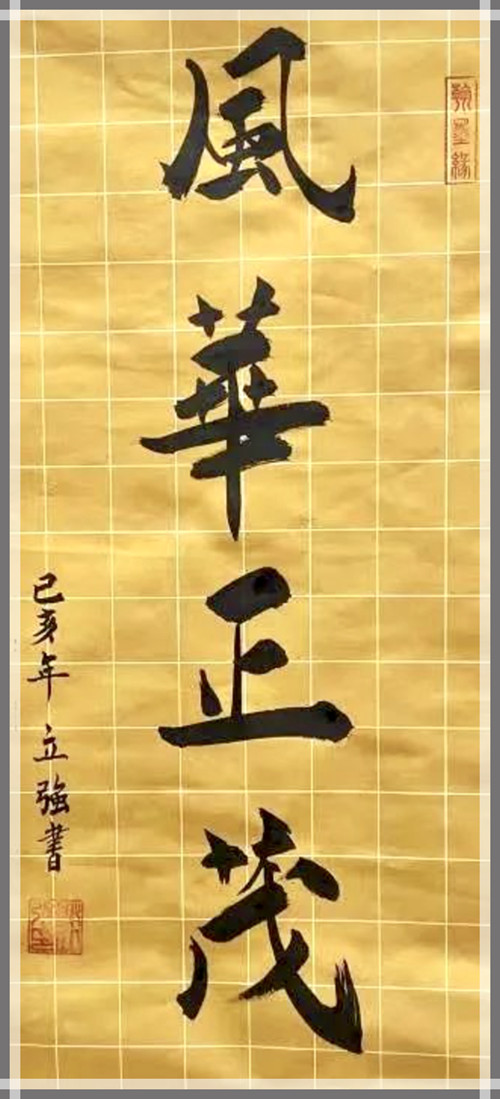 風華正茂
己亥年立強書
翰墨緣